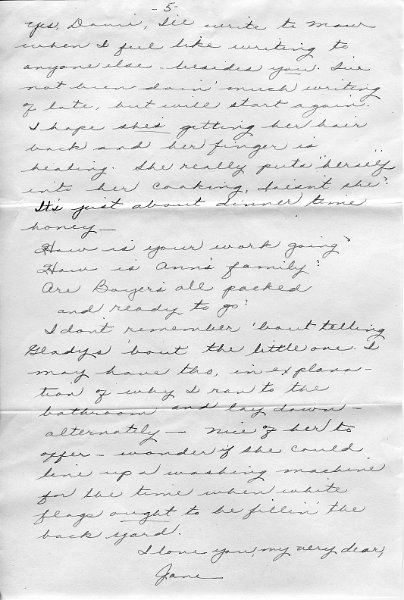 - 5 -
Yes, Danni, I'll write to Maur
when I feel like writing to
anyone else besides you. I've
not been doin' much writing
of late, but will start again.
I hope she's getting her hair
back and her finger is
healing. She really puts herself
into her cooking, doesn't she?
It's just about dinner time
honey—
How is your work going?
How is Ann's family?
Are Boyers all packed
and ready to go?
I don't remember 'bout telling
Gladys 'bout the little one. I
may have tho, in explana-
tion of why I ran to the
bathroom and lay down -
alternately — nice of her to
offer - wonder if she could
line up a washing machine
for the time when white
flags ought to be fillin' the
back yard.
I love you, my very dear,
Jane